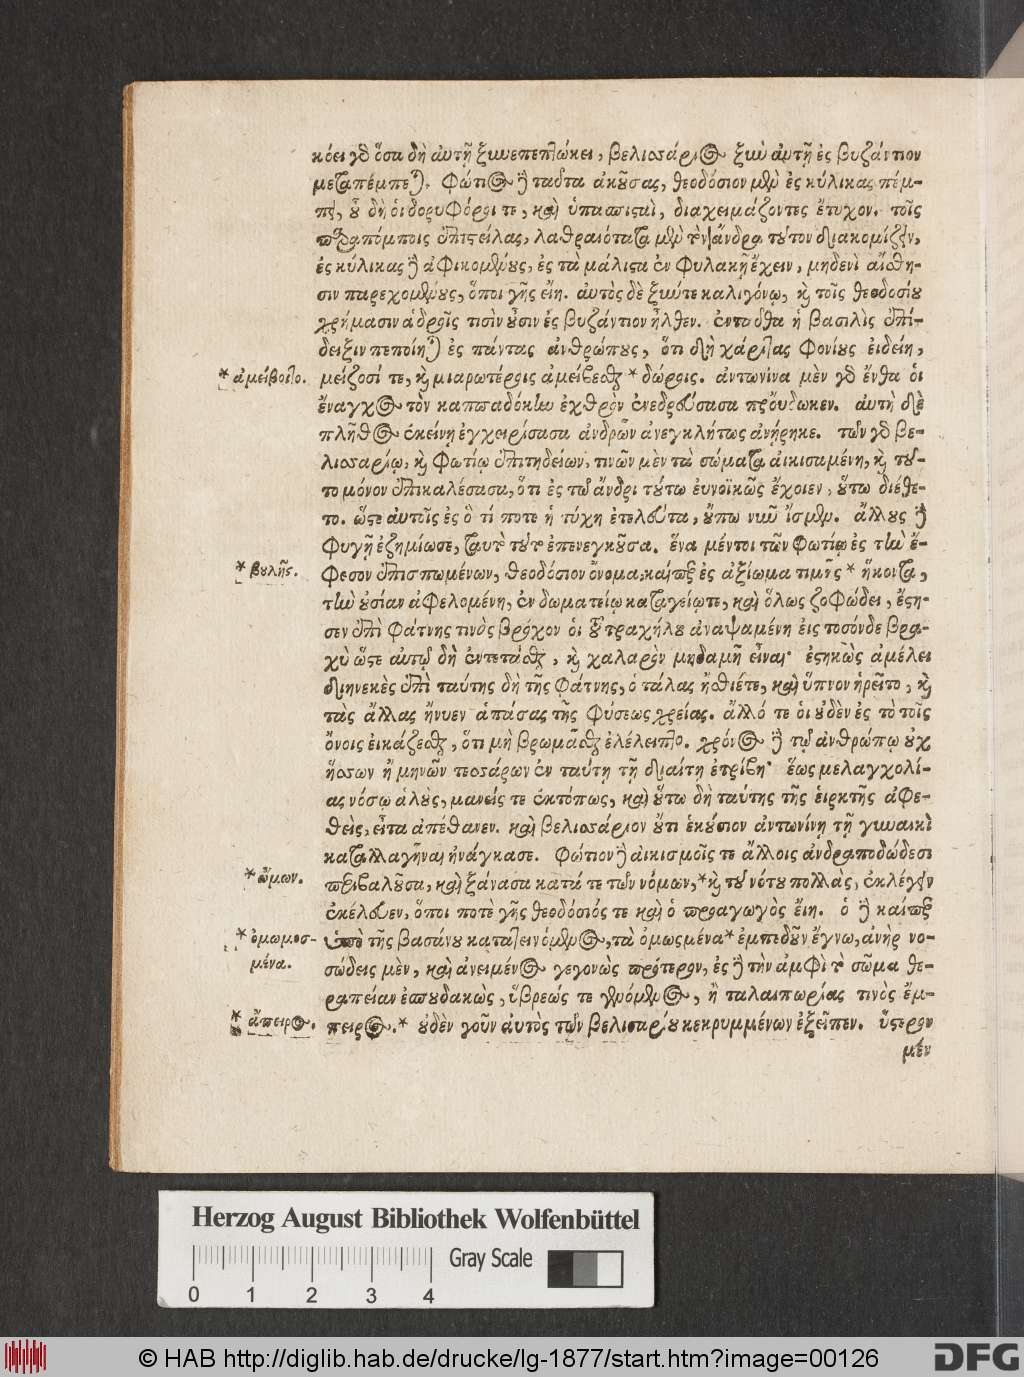 κόει γὸ ὅσα δὴ αὐτῇ ξυνεπεπτώκει, βελισάριος ξὺν αὐτῇ ἐς βυζάντιον
μεταπέμπεται. Φώτιος δὲ ταῦτα ἀκούσας, θεοδόσιον μὲν ἐς κύλικας πέμ-
πει, οὗ δὴ οἱ δορυφόροι τε, καὶ ὑπασπισταὶ, διαχειμάζοντες ἔτυχον. τοῖς
παραπόμποις ἐπιστείλας, λαθραιότατα μὲν τὸν ἄνδρα τοῦτον διακομίζειν,
ἐς κύλικας δὲ ἀφικομένους, ἐς τὰ μάλιστα ἐν φυλακῇ ἔχειν, μηδενὶ αἴσθη-
σιν παρεχομένους, ὅποι γῆς εἴη. αὐτὸς δὲ ξύν τε καλιγόνῳ, καὶ τοῖς θεοδοσίου
χρήμασιν ἁδροῖς τισὶν οὖσιν ἐς βυζάντιον ἦλθεν. ἐνταῦθα ἡ βασιλὶς ἐπί-
δειξιν πεποίηται ἐς πάντας ἀνθρώπους, ὅτι δὴ χάριτας φονίους εἰδείη,
* ἀμείβοιτο. μείζοσί τε, καὶ μιαρωτέροις ἀμείβεσθαι * δώροις. ἀντωνίνα μὲν γὸ ἔνθα οἱ
ἔναγχος τὸν καππαδόκην ἐχθρὸν ἐνεδρεύσασα προὔδωκεν. αὐτὴ δὲ
πλῆθος ἐκείνῃ ἐγχειρίσασα ἀνδρῶν ἀνεγκλήτως ἀνῄρηκε. τῶν γὸ βε-
λισαρίῳ, καὶ Φωτίῳ ἐπιτηδείων, τινῶν μὲν τὰ σώματα αἰκισαμένη, καὶ τοῦ-
το μόνον ἐπικαλέσασα, ὅτι ἐς τὼ ἄνδρε τούτω εὐνοϊκῶς ἔχοιεν, οὕτω διέθε-
το. ὥστε αὐτοῖς ἐς ὅ τί ποτε ἡ τύχη ἐτελεύτα, οὔπω νῦν ἴσμεν. ἄλλους δὲ
φυγῇ ἐζημίωσε, ταὐτὸ τοῦτο ἐπενεγκοῦσα. ἕνα μέντοι τῶν Φωτίῳ ἐς τὴν ἔ-
* βουλῆς. φεσον ἐπισπωμένων, θεοδόσιον ὄνομα, καίπερ ἐς ἀξίωμα τιμῆς * ἥκοντα,
τὴν οὐσίαν ἀφελομένη, ἐν δωματείῳ καταγείῳ τε, καὶ ὅλως ζοφώδει, ἔστη-
σεν ἐπὶ φάτνης τινὸς βρόχον οἱ τοῦ τραχήλου ἀναψαμένη εἰς τοσόνδε βρα-
χὺ ὥστε αὐτῷ δὴ ἐντετάσθαι, καὶ χαλαρὸν μηδαμῆ εἶναι· ἑστηκὼς ἀμέλει
διηνεκὲς ἐπὶ ταύτης δὴ τῆς φάτνης, ὁ τάλας ἤσθιέ τε, καὶ ὕπνον ᾑρεῖτο, καὶ
τὰς ἄλλας ἤνυεν ἁπάσας τῆς φύσεως χρείας. ἄλλό τε οἱ οὐδὲν ἐς τὸ τοῖς
ὄνοις εἰκάζεσθαι, ὅτι μὴ βρωμᾶσθαι ἐλέλειπτο. χρόνος δὲ τῷ ἀνθρώπῳ οὐχ
ἧσσων ἢ μηνῶν τεσσάρων ἐν ταύτῃ τῇ διαίτῃ ἐτρίβη· ἕως μελαγχολί-
ας νόσῳ ἁλοὺς, μανείς τε ἐκτόπως, καὶ οὕτω δὴ ταύτης τῆς εἱρκτῆς ἀφε-
θεὶς, εἶτα ἀπέθανεν. καὶ βελισάριον οὔτι ἑκούσιον ἀντωνίνῃ τῇ γυναικὶ
καταλλαγῆναι ἠνάγκασε. Φώτιον δὲ αἰκισμοῖς τε ἄλλοις ἀνδραποδώδεσι
* ὤμων. περιβαλοῦσα, καὶ ξάνασα κατά τε τῶν νόμων,* καὶ τοῦ νότου πολλὰς, ἐκλέγειν
ἐκέλευεν, ὅποι ποτὲ γῆς θεοδόσιός τε καὶ ὁ προαγωγὸς εἴη. ὁ δὲ καίπερ
* ὀμωμοσ- ὑπὸ τῆς βασάνου κατατεινόμενος, τὰ ὀμωςμένα * ἐμπεδοῦν ἔγνω, ἀνὴρ νο-
μένα. σώδεις μὲν, καὶ ἀνειμένος γεγονὼς πρότερον, ἐς δὲ τὴν ἀμφὶ τὸ σῶμα θε-
ραπείαν ἐσπουδακὼς, ὕβρεώς τε γενόμενος, ἢ ταλαιπωρίας τινὸς ἔμ-
* ἄπειρος. πειρος.* οὐδὲν γοῦν αὐτὸς τῶν βελισαρίου κεκρυμμένων ἐξεῖπεν. ὕστερον
μὲν
Herzog August Bibliothek Wolfenbüttel
Gray Scale
0 1 2 3 4
© HAB http://diglib.hab.de/drucke/lg-1877/start.htm?image=00126
DFG